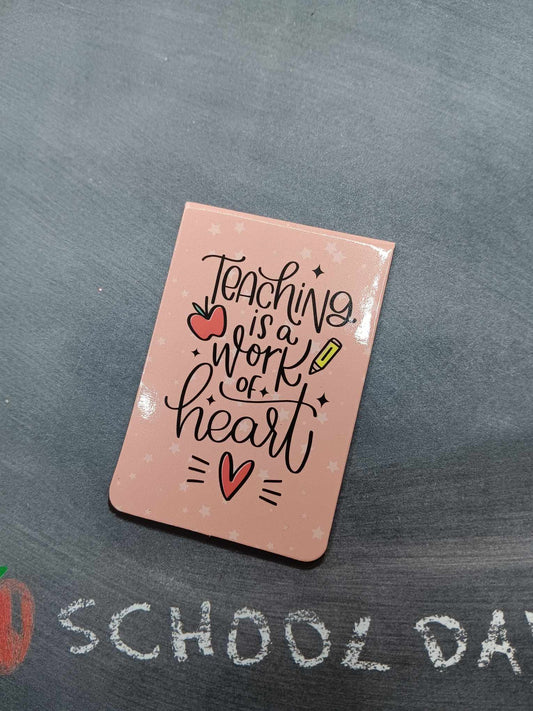 Teaching
is a
work
of
heart
SCHOOL DA